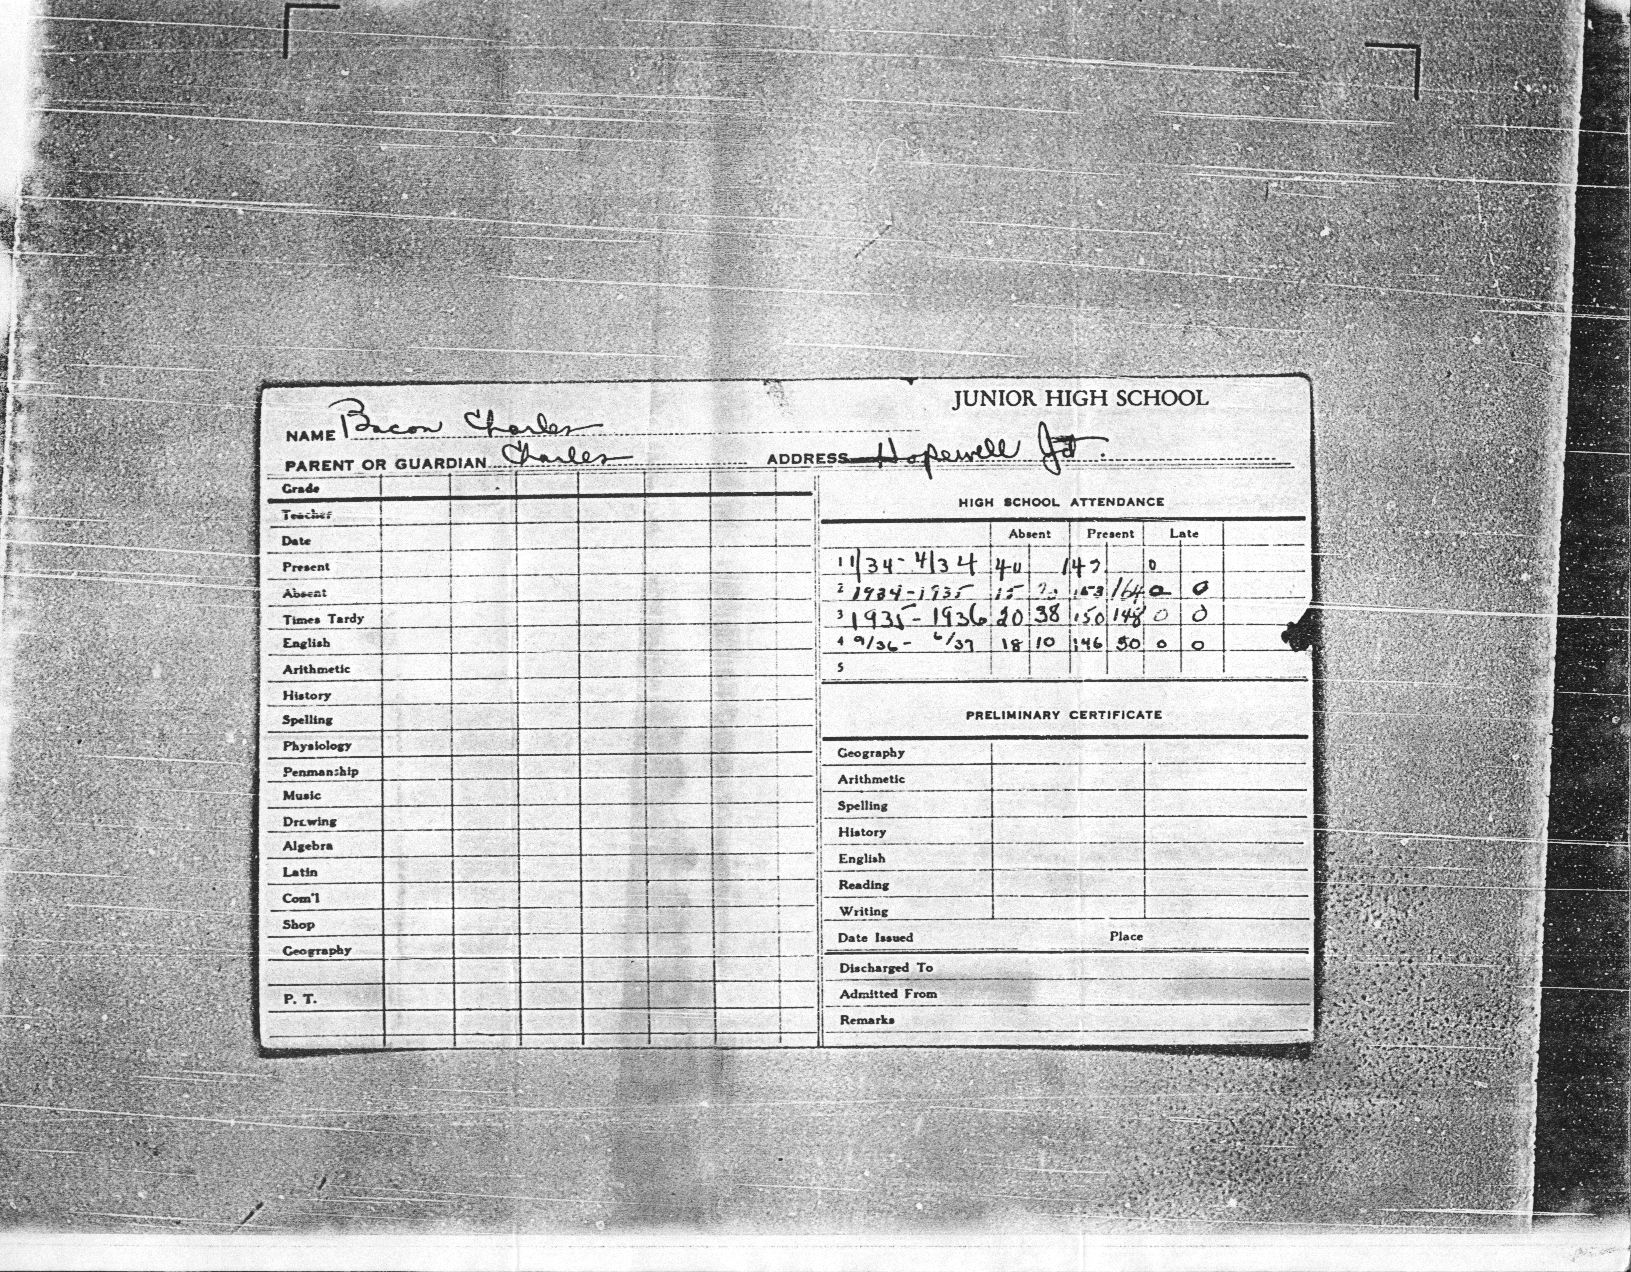 JUNIOR HIGH SCHOOL
NAME Bacon Charles
PARENT OR GUARDIAN Charles ADDRESS Hopewell Jct.
Grade
Teacher
Date
Present
Absent
Times Tardy
English
Arithmetic
History
Spelling
Physiology
Penmanship
Music
Drawing
Algebra
Latin
Com'l
Shop
Geography
P. T.
HIGH SCHOOL ATTENDANCE
Absent Present Late
1 1/34 - 4/34 40 147 0
2 1934-1935 15 153 164 0 0
3 1935-1936 20 38 150 148 0 0
4 9/36 - 6/37 18 10 146 50 0 0
5
PRELIMINARY CERTIFICATE
Geography
Arithmetic
Spelling
History
English
Reading
Writing
Date Issued Place
Discharged To
Admitted From
Remarks